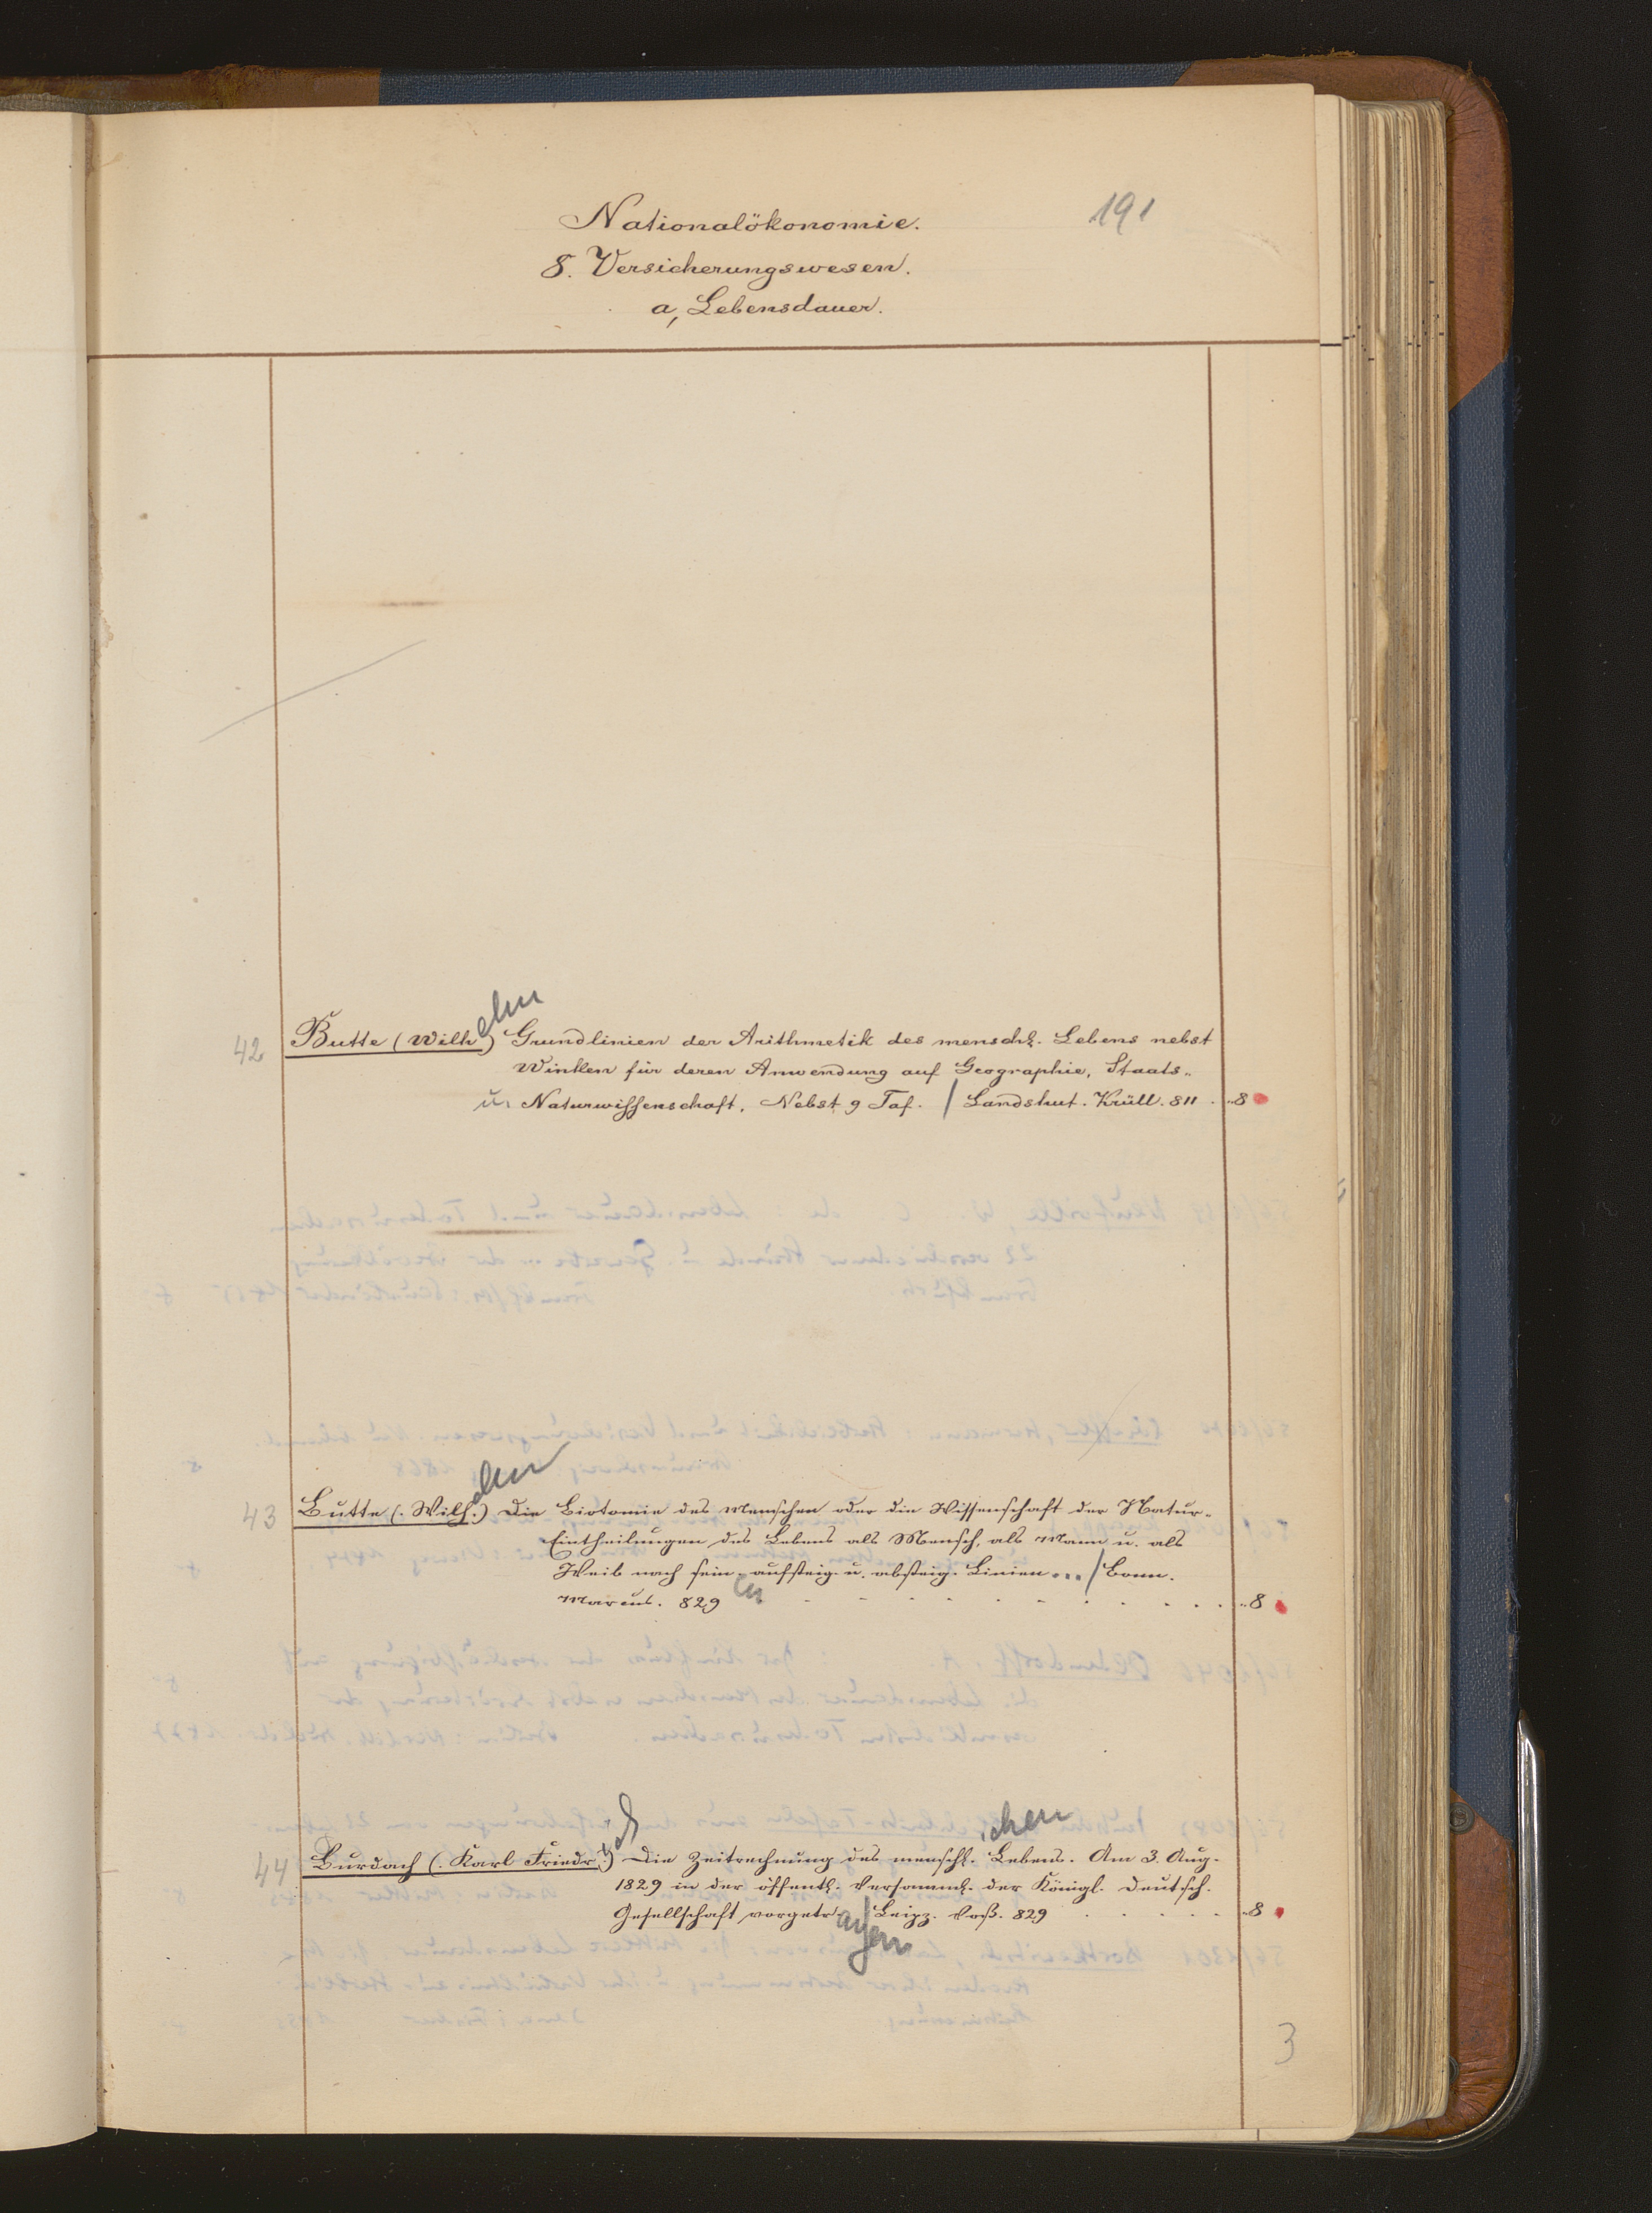 191
Nationalökonomie.
8. Versicherungswesen.
a, Lebensdauer.
elm
42 Butte (Wilh) Grundlinien der Arithmetik des menschl. Lebens nebst
Winken für deren Anwendung auf Geographie, Staats-
u. Naturwissenschaft. Nebst 9 Taf. / Landshut. Krüll. 811 . 8
elm
43 Butte (. Wilh.) Die Biotomie des Menschen oder die Wissenschaft der Natur-
Eintheilungen des Lebens als Mensch, als Mann u. als
Weib nach sein. aufsteig. u. absteig. Linien ... / Bonn.
en
Marcus. 829 . . . . . . . . . . . 8
ichen
44 Burdach (. Karl Friedr.) Die Zeitrechnung des menschl. Lebens. Am 3. Aug.
1829 in der öffentl. Versamml. der Königl. Deutsch.
Gesellschaft vorgetr / Leipz. Voß. 829 . . . . . 8
agen
3